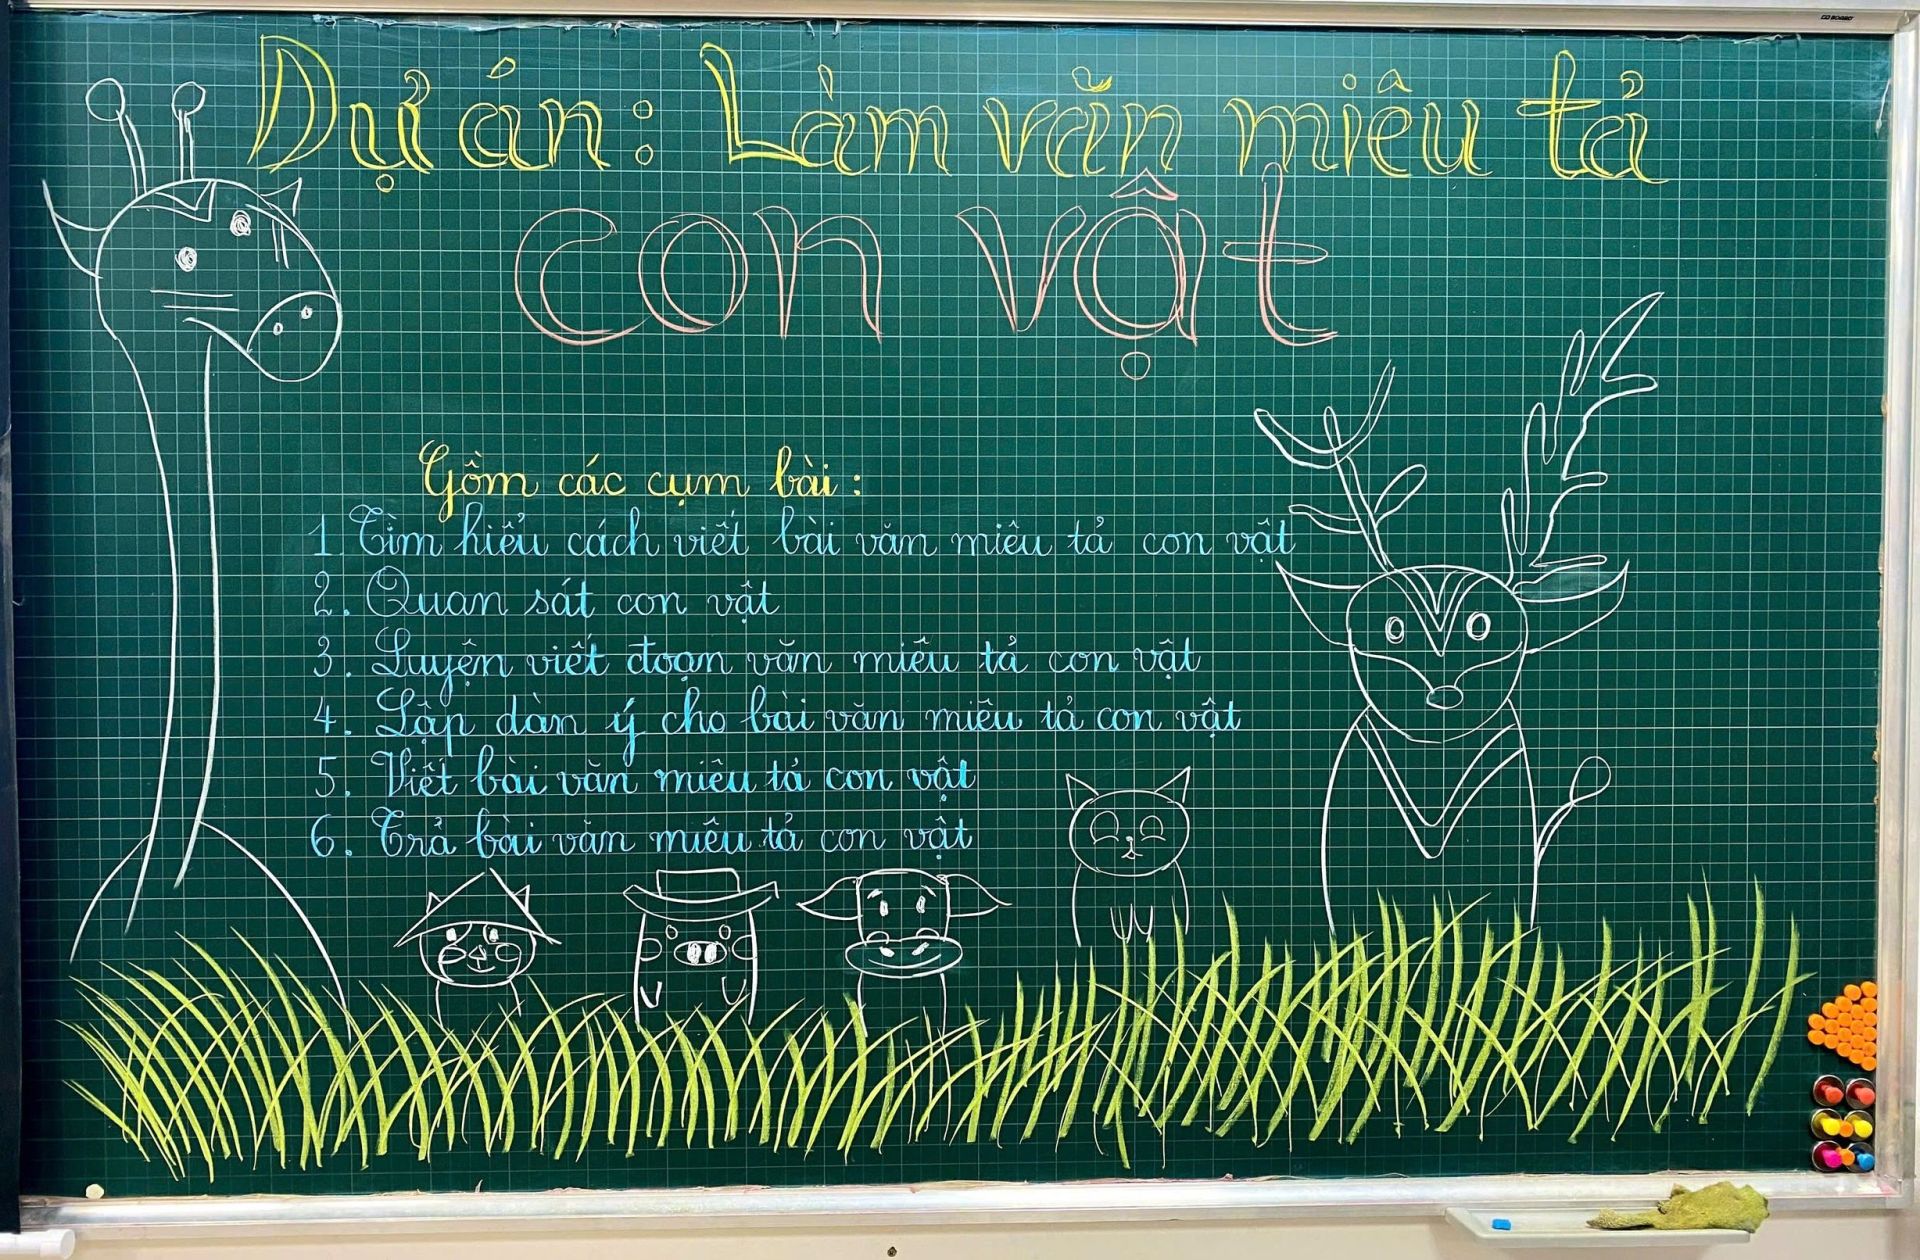 Dự án: Làm văn miêu tả
con vật
Gồm các cụm bài:
1. Tìm hiểu cách viết bài văn miêu tả con vật
2. Quan sát con vật
3. Luyện viết đoạn văn miêu tả con vật
4. Lập dàn ý cho bài văn miêu tả con vật
5. Viết bài văn miêu tả con vật
6. Trả bài văn miêu tả con vật